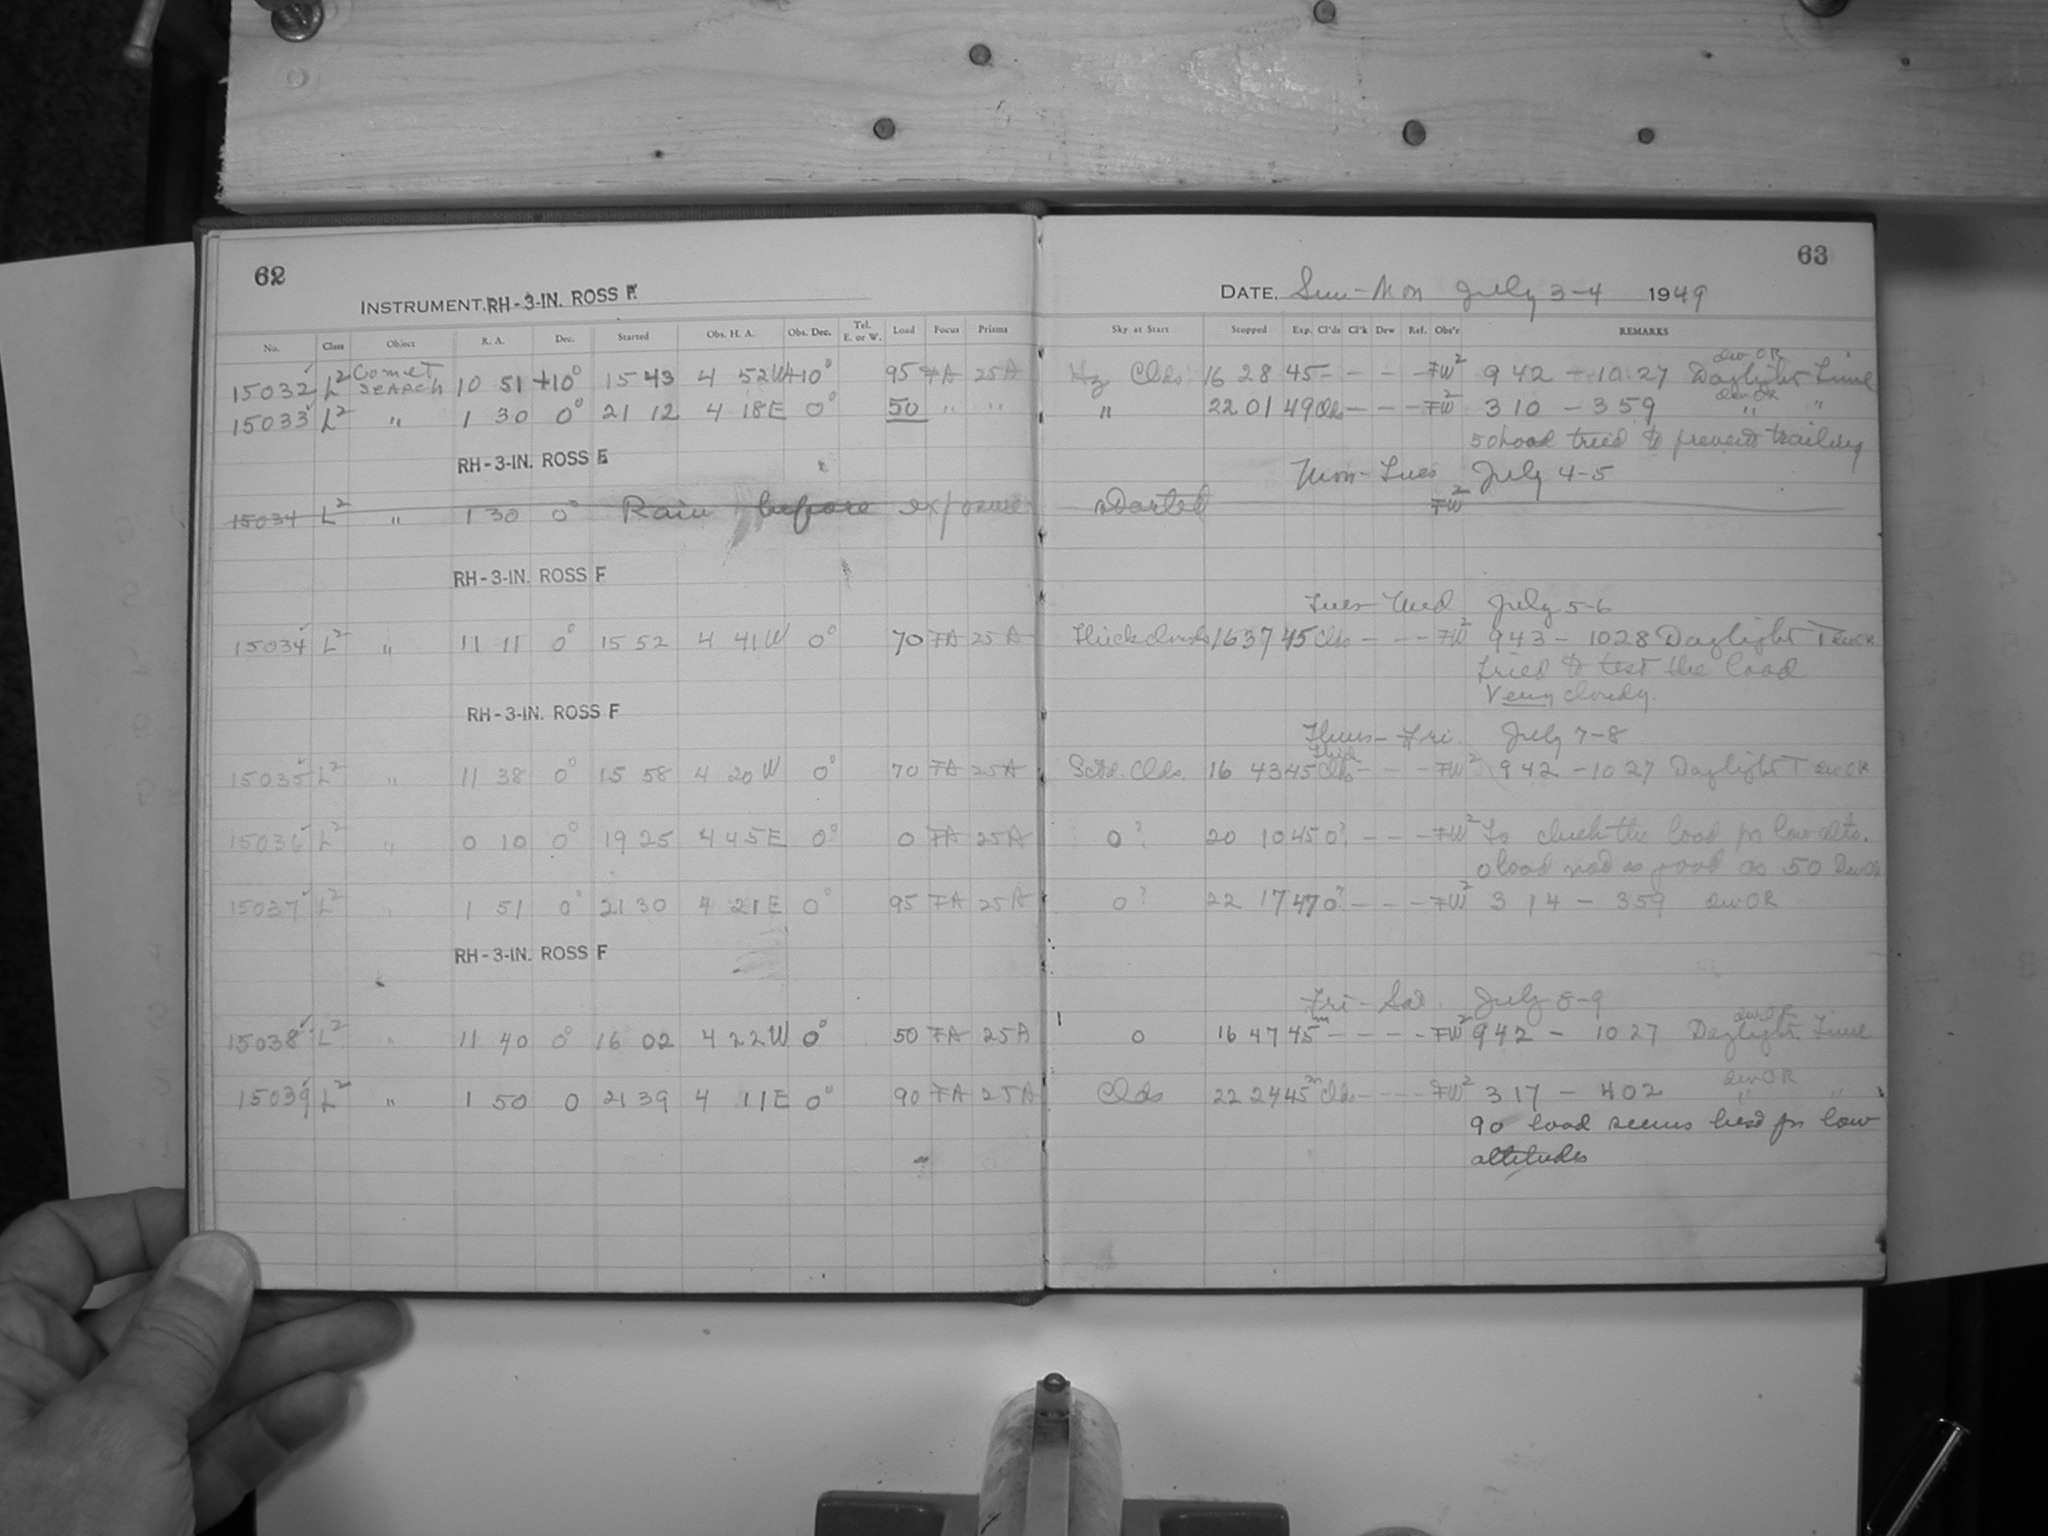 62
INSTRUMENT. RH-3-IN. ROSS F.
No. Class Object R. A. Dec. Started Obs. H. A. Obs. Dec. Tel. E. or W. Load Focus Prisms
15032 L2 COMET SEARCH 10 51 +10° 15 43 4 52W +10° 95 FA 25A
15033 L2 " 1 30 0° 21 12 4 18E 0° 50 " "
RH-3-IN. ROSS F
15034 L2 " 1 30 0° Rain before exposure
RH-3-IN. ROSS F
15034 L2 " 11 11 0° 15 52 4 41W 0° 70 FA 25A
RH-3-IN. ROSS F
15035 L2 " 11 38 0° 15 58 4 20W 0° 70 FA 25A
15036 L2 " 0 10 0° 19 25 4 45E 0° 0 FA 25A
15037 L2 " 1 51 0° 21 30 4 21E 0° 95 FA 25A
RH-3-IN. ROSS F
15038 L2 " 11 40 0° 16 02 4 22W 0° 50 FA 25A
15039 L2 " 1 50 0 21 39 4 11E 0° 90 FA 25A
63
DATE. Sun-Mon July 3-4 1949
Sky at Start Stopped Exp. Cl'ds Cl'k Dew Ref. Obs'r REMARKS
Hz Clds 16 28 45 - - - - FW2 9 42 - 10 27 Daylight Time dew OR
" 22 01 49 Clds - - - FW2 3 10 - 3 59 " " dew OR
50 load tried to prevent trailing
Mon-Tues July 4-5
started FW2
Tues-Wed July 5-6
Thick clouds 16 37 45 Clds - - - FW2 9 43 - 10 28 Daylight T dew OR
tried to test the load
Very cloudy.
Thurs-Fri July 7-8
Sctd. Clds. 16 43 45 Thick Clds - - - FW2 9 42 - 10 27 Daylight T dew OR
0? 20 10 45 0? - - - FW2 To check the load for low alts.
0 load not as good as 50 Dew OR
0? 22 17 47 0? - - - FW2 3 14 - 3 59 dew OR
Fri-Sat July 8-9
0 16 47 45m - - - - FW2 9 42 - 10 27 Daylight Time dew OR
Clds 22 24 45m Clds - - - FW2 3 17 - 4 02 " " dew OR
90 load seems best for low
altitudes